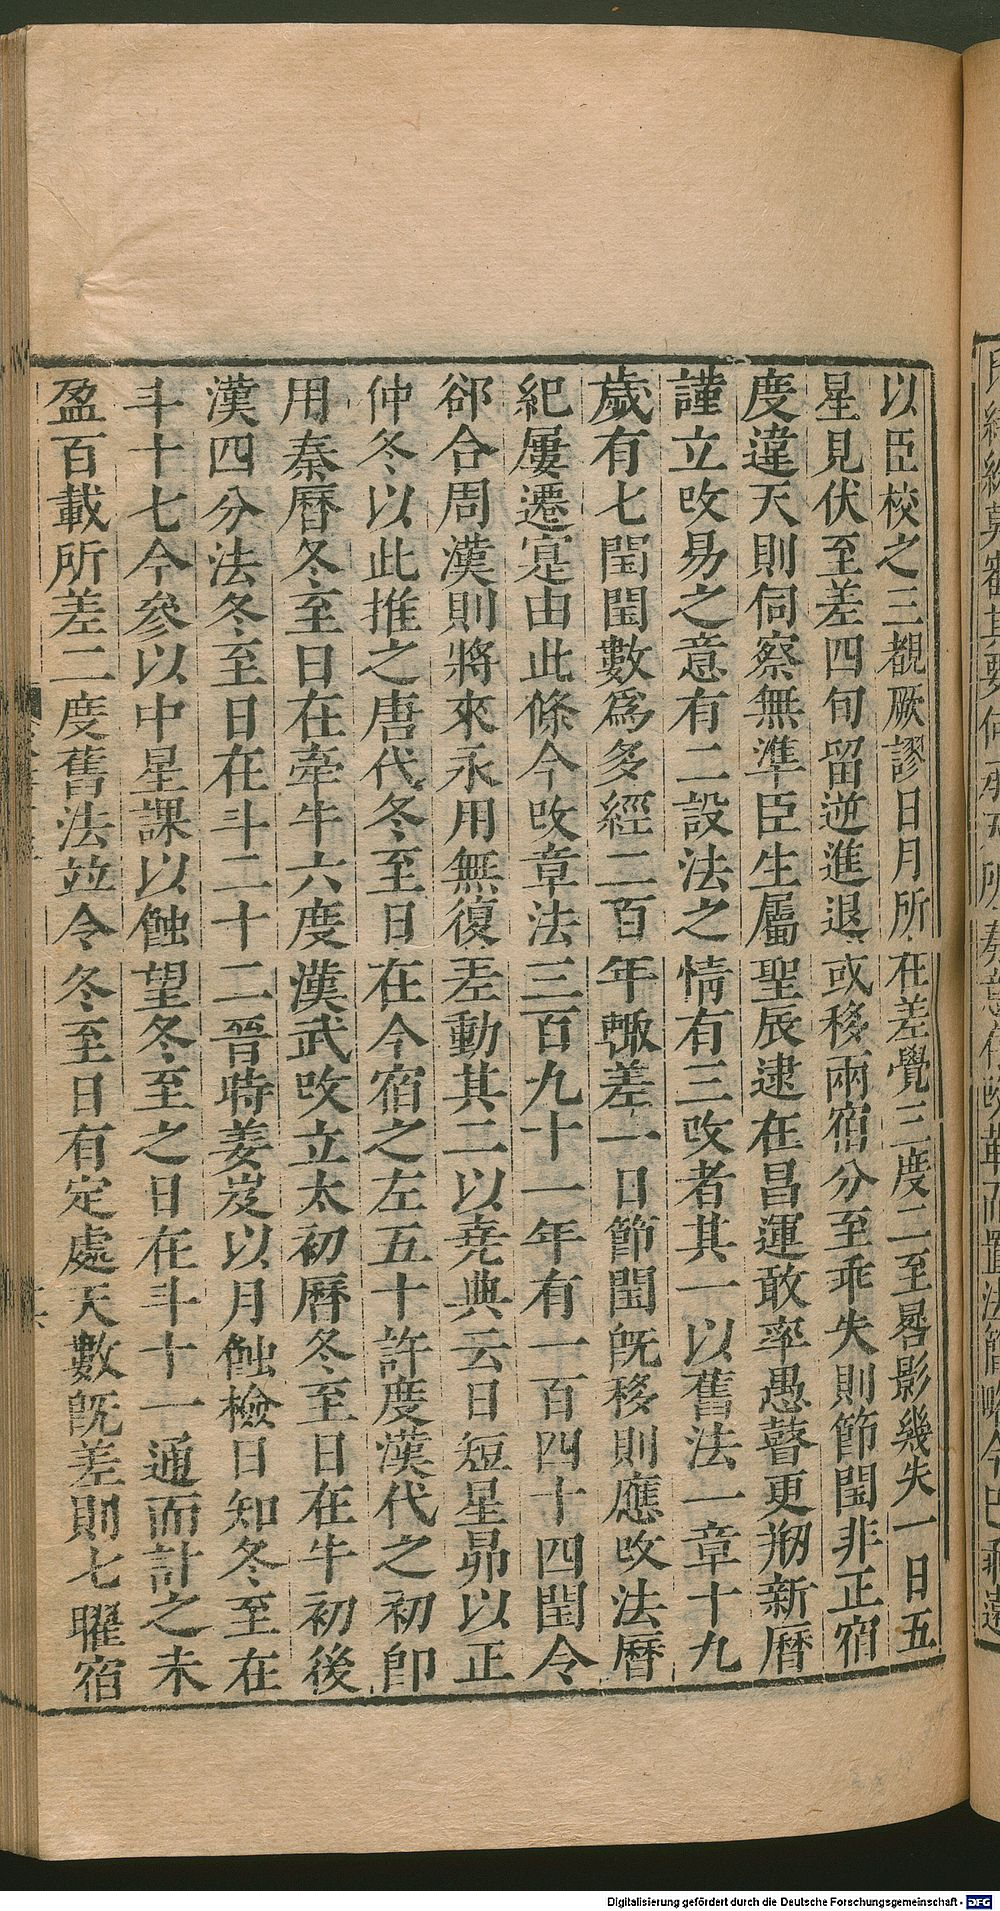 以臣校之三覩厥謬日月所在差覺三度二至晷影幾失一日五
星見伏至差四旬留逆進退或移兩宿分至乖失則節閏非正宿
度違天則伺察無準臣生屬聖辰逮在昌運敢率愚瞽更剏新曆
謹立攺易之意有二設法之情有三攺者其一以舊法一章十九
歲有七閏閏數爲多經二百年輙差一日節閏旣移則應攺法曆
紀屢遷寔由此條今攺章法三百九十一年有一百四十四閏令
郤合周漢則將來永用無復差動其二以堯典云日短星昴以正
仲冬以此推之唐代冬至日在今宿之左五十許度漢代之初卽
用秦曆冬至日在牽牛六度漢武攺立太初曆冬至日在牛初後
漢四分法冬至日在斗二十二晉時姜岌以月蝕檢日知冬至在
斗十七今參以中星課以蝕望冬至之日在斗十一通而計之未
盈百載所差二度舊法竝令冬至日有定處天數旣差則七曜宿
Digitalisierung gefördert durch die Deutsche Forschungsgemeinschaft - DFG